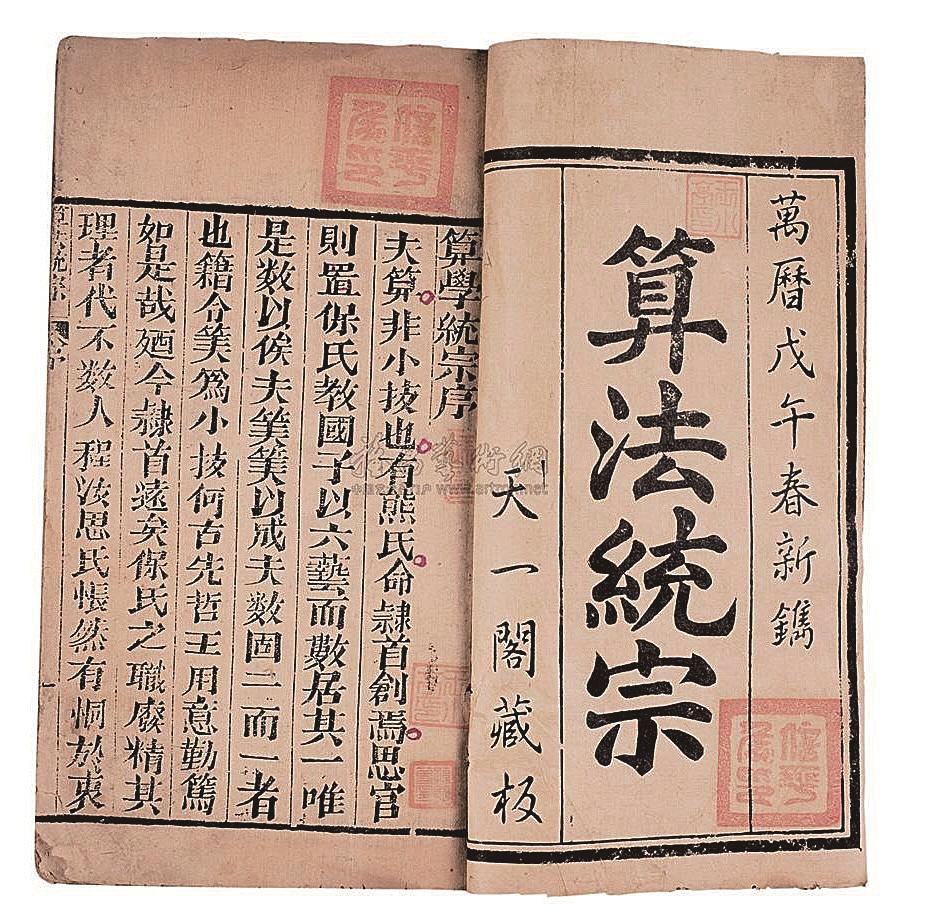 萬曆戊午春新鐫
算法統宗
天一閣藏板
算學統宗序
夫算非小技也有熊氏命隷首創焉思官
則置保氏教國子以六藝而數居其一唯
是数以俟夫筭筭以成夫数固二而一者
也籍令筭爲小技何古先哲王用意勤篤
如是哉廼今隷首遠矣保氏之職廢精其
理者代不数人程汝思氏悵然有恫於衷
www.artron.net